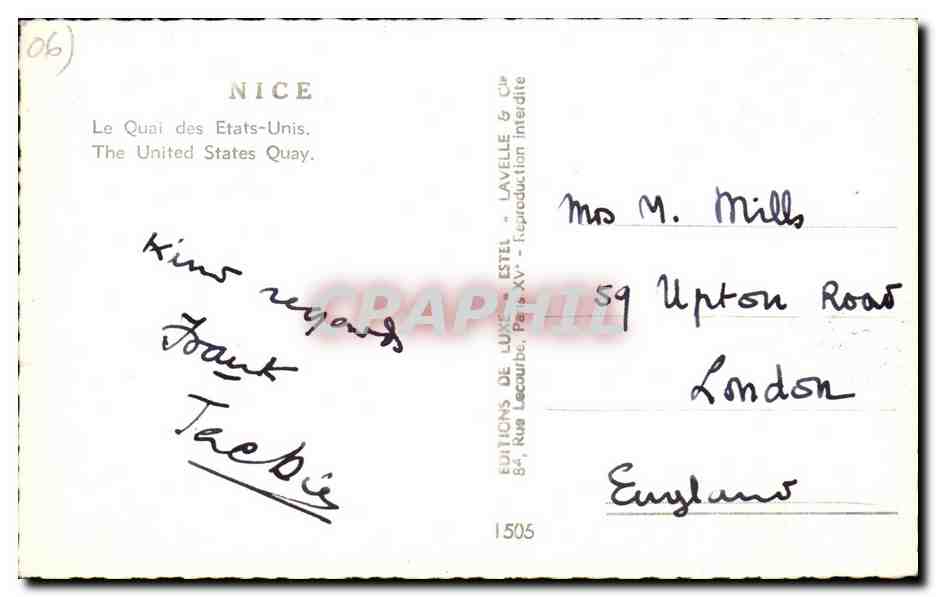 06)
NICE
Le Quai des Etats-Unis.
The United States Quay.
Kind regards
Frank
EDITIONS DE LUXE - ESTEL - LAVELLE & Cie
84, Rue Lecourbe, Paris XVe - Reproduction interdite
CPAPHIL
Mrs M. Mills
59 Upton Road
London
England
1505